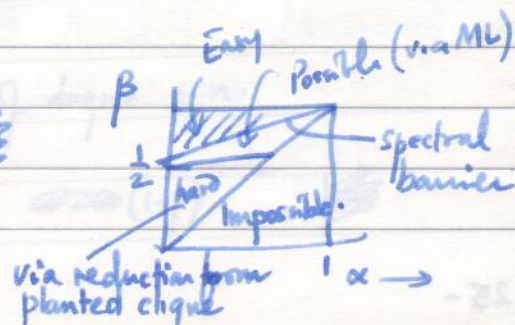 Easy
Possible (via ML)
β
spectral
barrier
1/2
hard
Impossible.
via reduction from
planted clique
1 α →